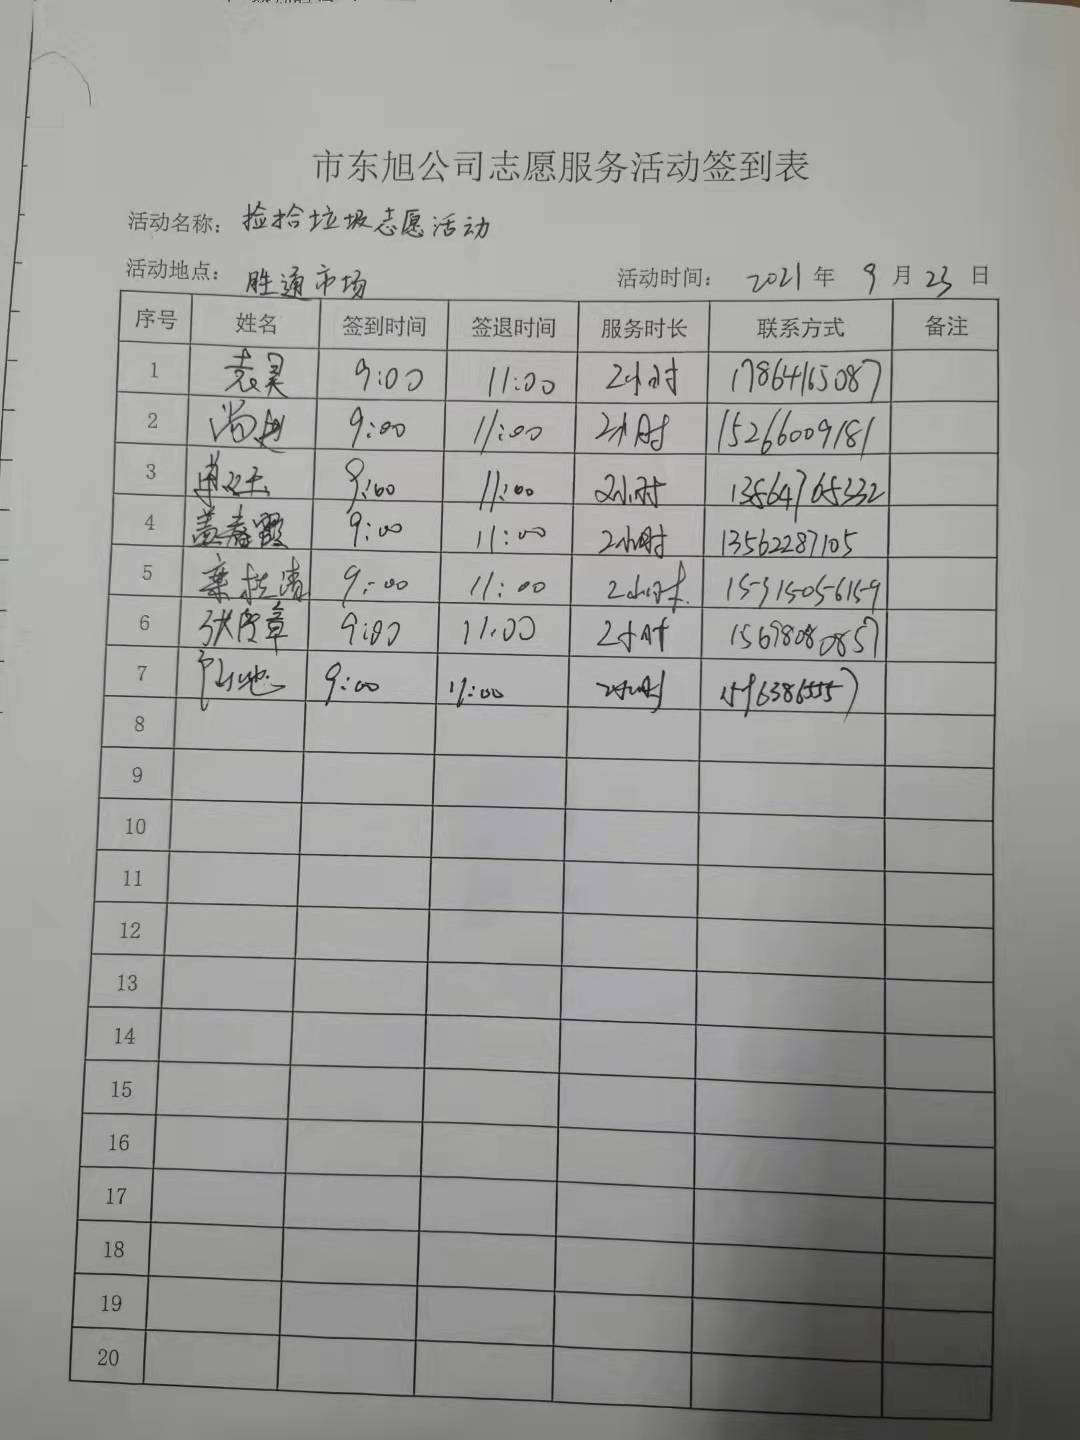 市东旭公司志愿服务活动签到表
活动名称: 捡拾垃圾志愿活动
活动地点: 胜通市场 活动时间: 2021 年 9 月 23 日
序号 姓名 签到时间 签退时间 服务时长 联系方式 备注
1 袁昊 9:00 11:00 2小时 17864165087
2 9:00 11:00 2小时 15266009181
3 9:00 11:00 2小时 13564765332
4 盖春霞 9:00 11:00 2小时 13562287105
5 9:00 11:00 2小时 15315056159
6 9:00 11:00 2小时 15698080857
7 9:00 11:00 2小时
8
9
10
11
12
13
14
15
16
17
18
19
20